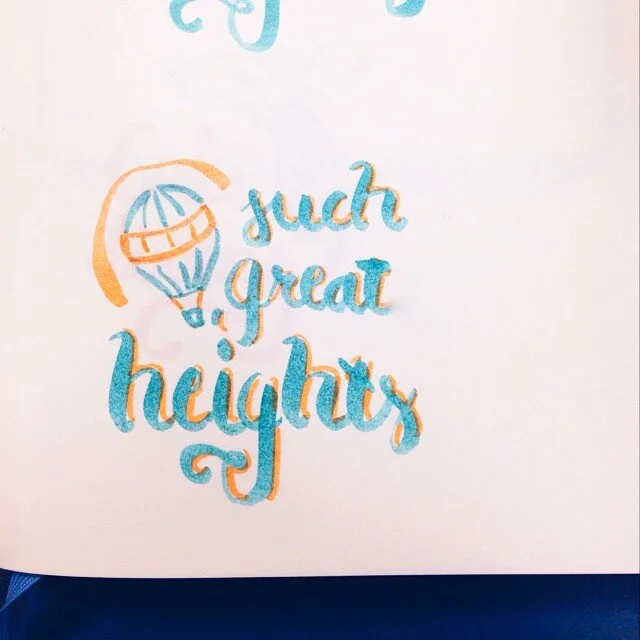 such
great
heights